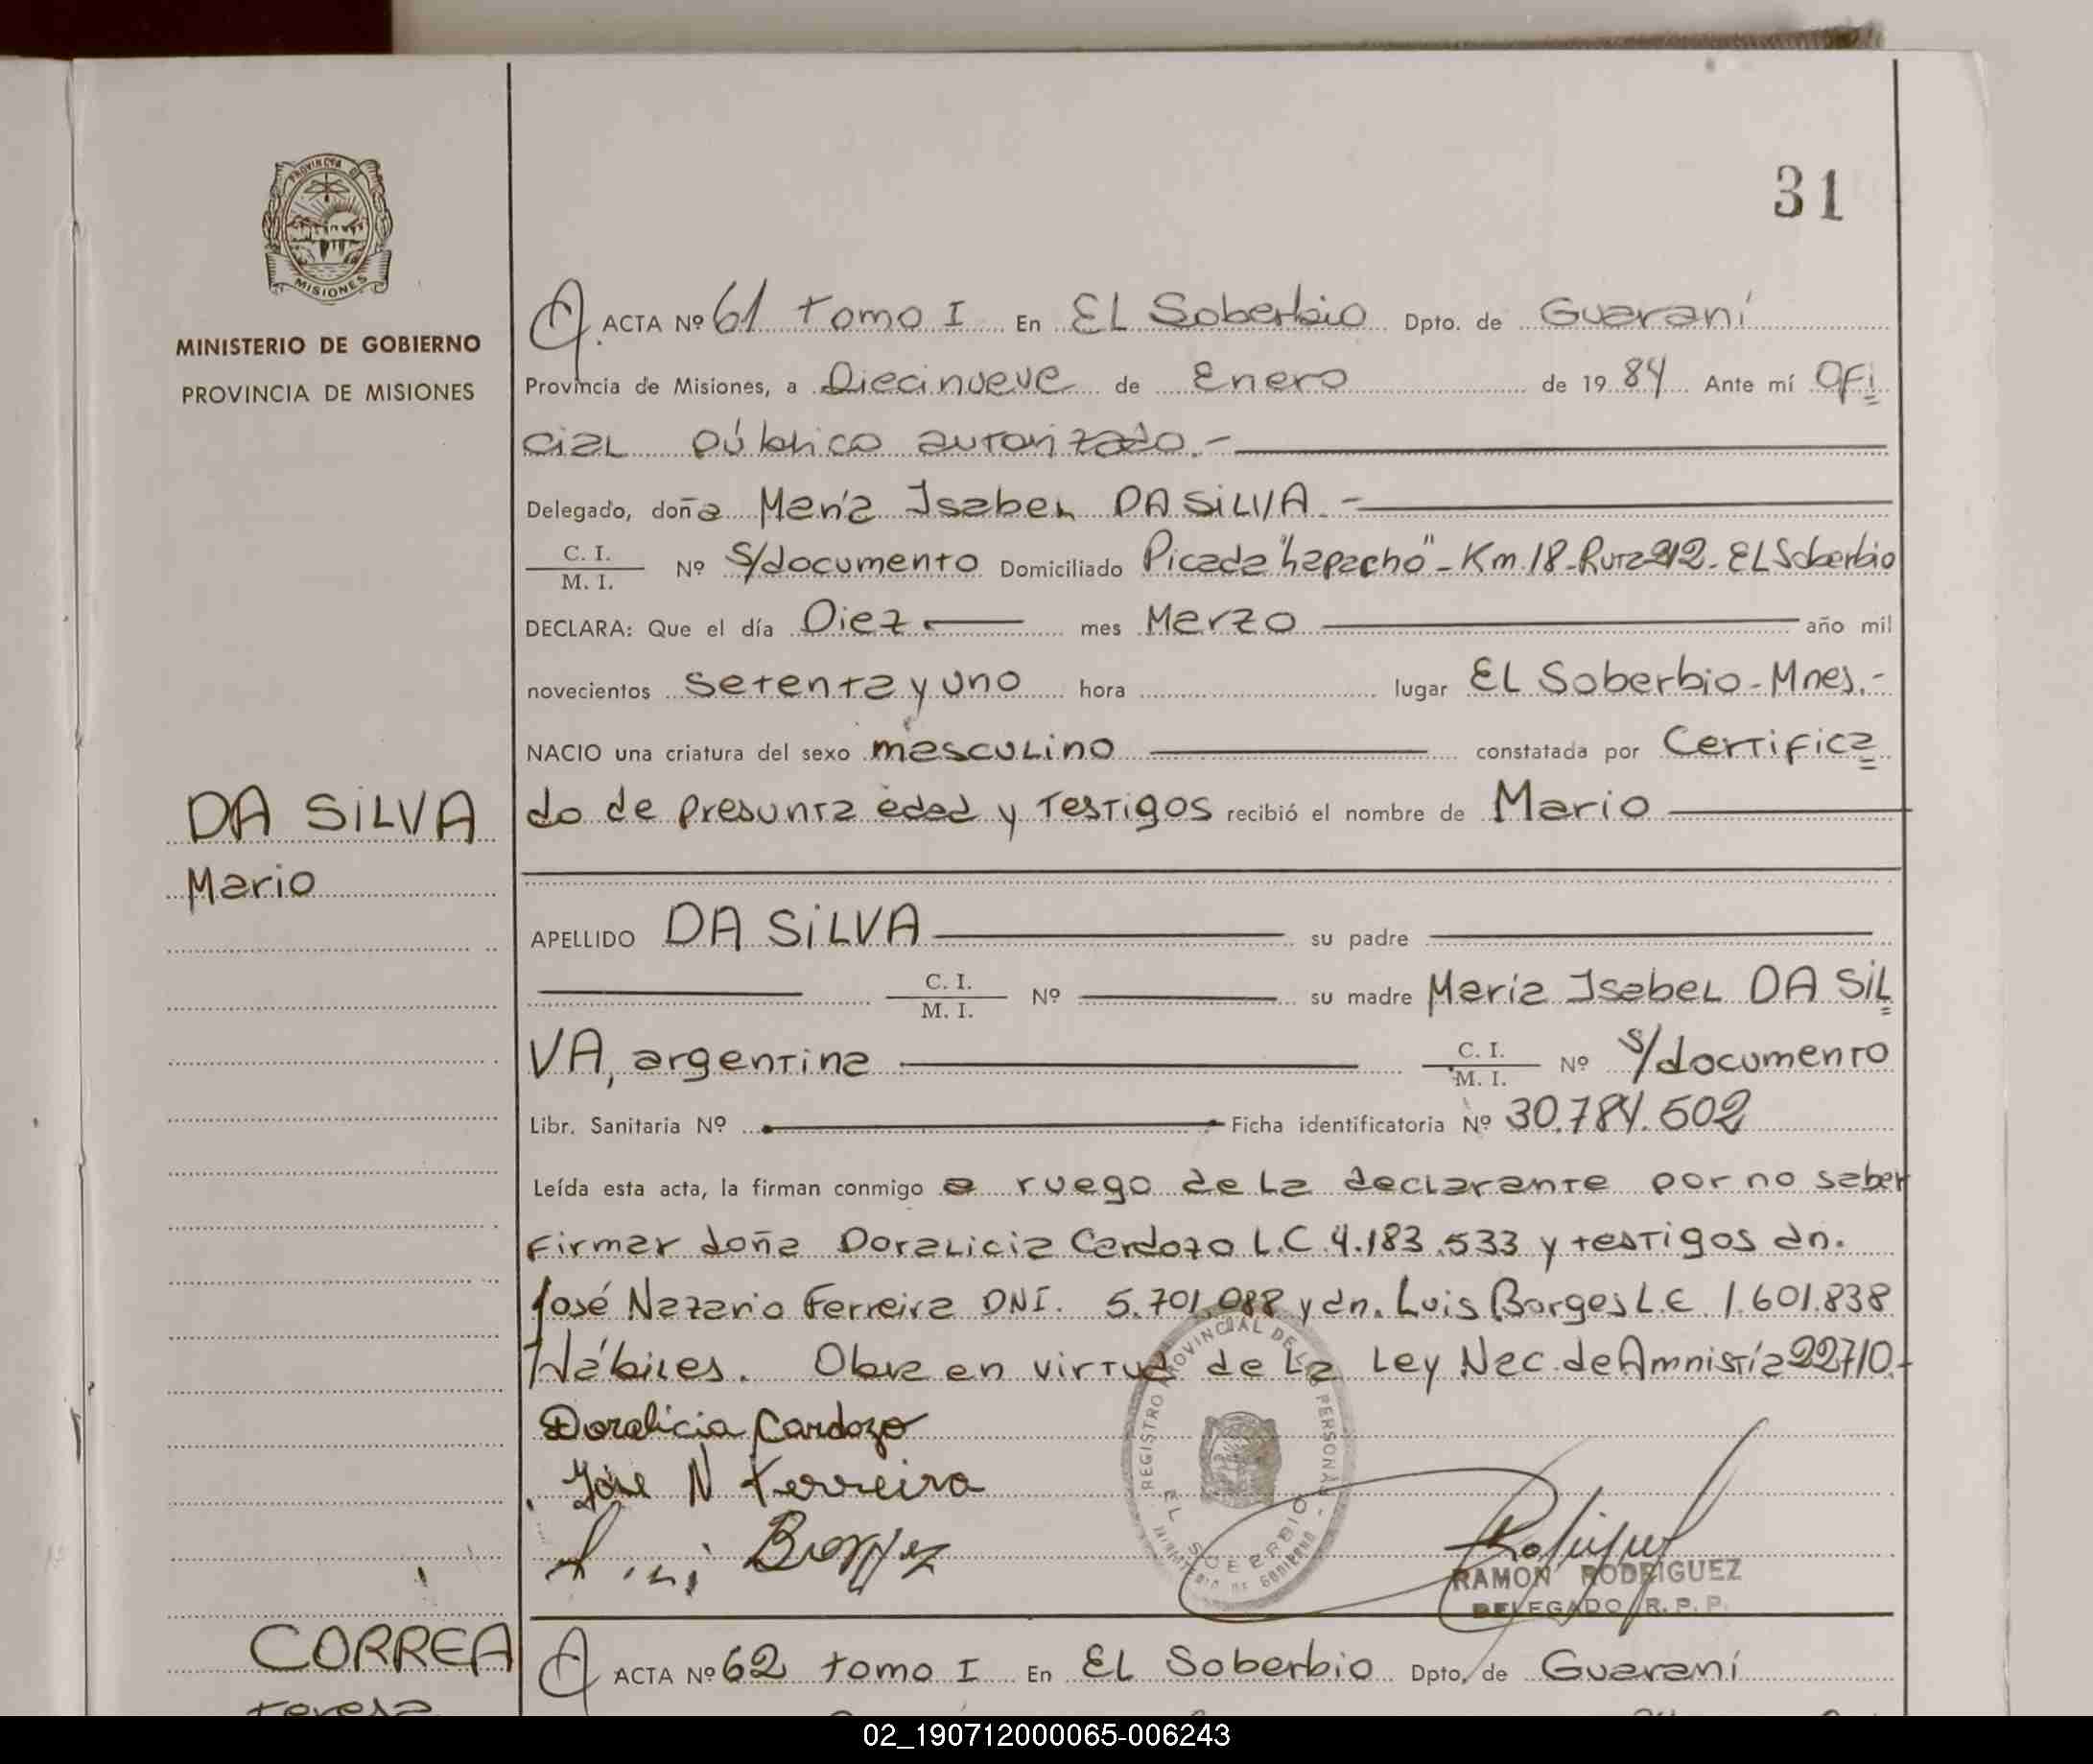 31
PROVINCIA DE
MISIONES
MINISTERIO DE GOBIERNO
PROVINCIA DE MISIONES
ACTA Nº 61 tomo I En EL Soberbio Dpto. de Guaraní
Provincia de Misiones, a Diecinueve de Enero de 1984 Ante mí Ofi
cial público autorizado.-
Delegado, doña María Isabel DA SILVA.-
C. I.
M. I. Nº S/documento Domiciliado Picada "Lapacho" - Km.18-Ruta 212-EL Soberbio
DECLARA: Que el día Diez mes Marzo año mil
novecientos setenta y uno hora lugar EL Soberbio-Mnes.-
NACIO una criatura del sexo masculino constatada por Certifica
DA SILVA
Mario
do de presunta edad y testigos recibió el nombre de Mario
APELLIDO DA SILVA su padre
C. I.
M. I. Nº su madre María Isabel DA SIL
VA, argentina C. I.
M. I. Nº s/documento
Libr. Sanitaria Nº Ficha identificatoria Nº 30.784.602
Leída esta acta, la firman conmigo a ruego de la declarante por no saber
firmar doña Doralicia Cardozo L.C 4.183.533 y testigos dn.
José Nazario Ferreira DNI. 5.701.088 y dn. Luis Borges L.E 1.601.838
Hábiles. Obra en virtud de la Ley Nac. de Amnistía 22710.-
Doralicia Cardozo
José N Ferreira
Luis Borges
REGISTRO PROVINCIAL DE LAS PERSONAS - EL SOBERBIO
MINISTERIO DE GOBIERNO
RAMON RODRIGUEZ
DELEGADO R. P. P.
CORREA
Teresa
ACTA Nº 62 tomo I En EL Soberbio Dpto. de Guaraní
02_190712000065-006243